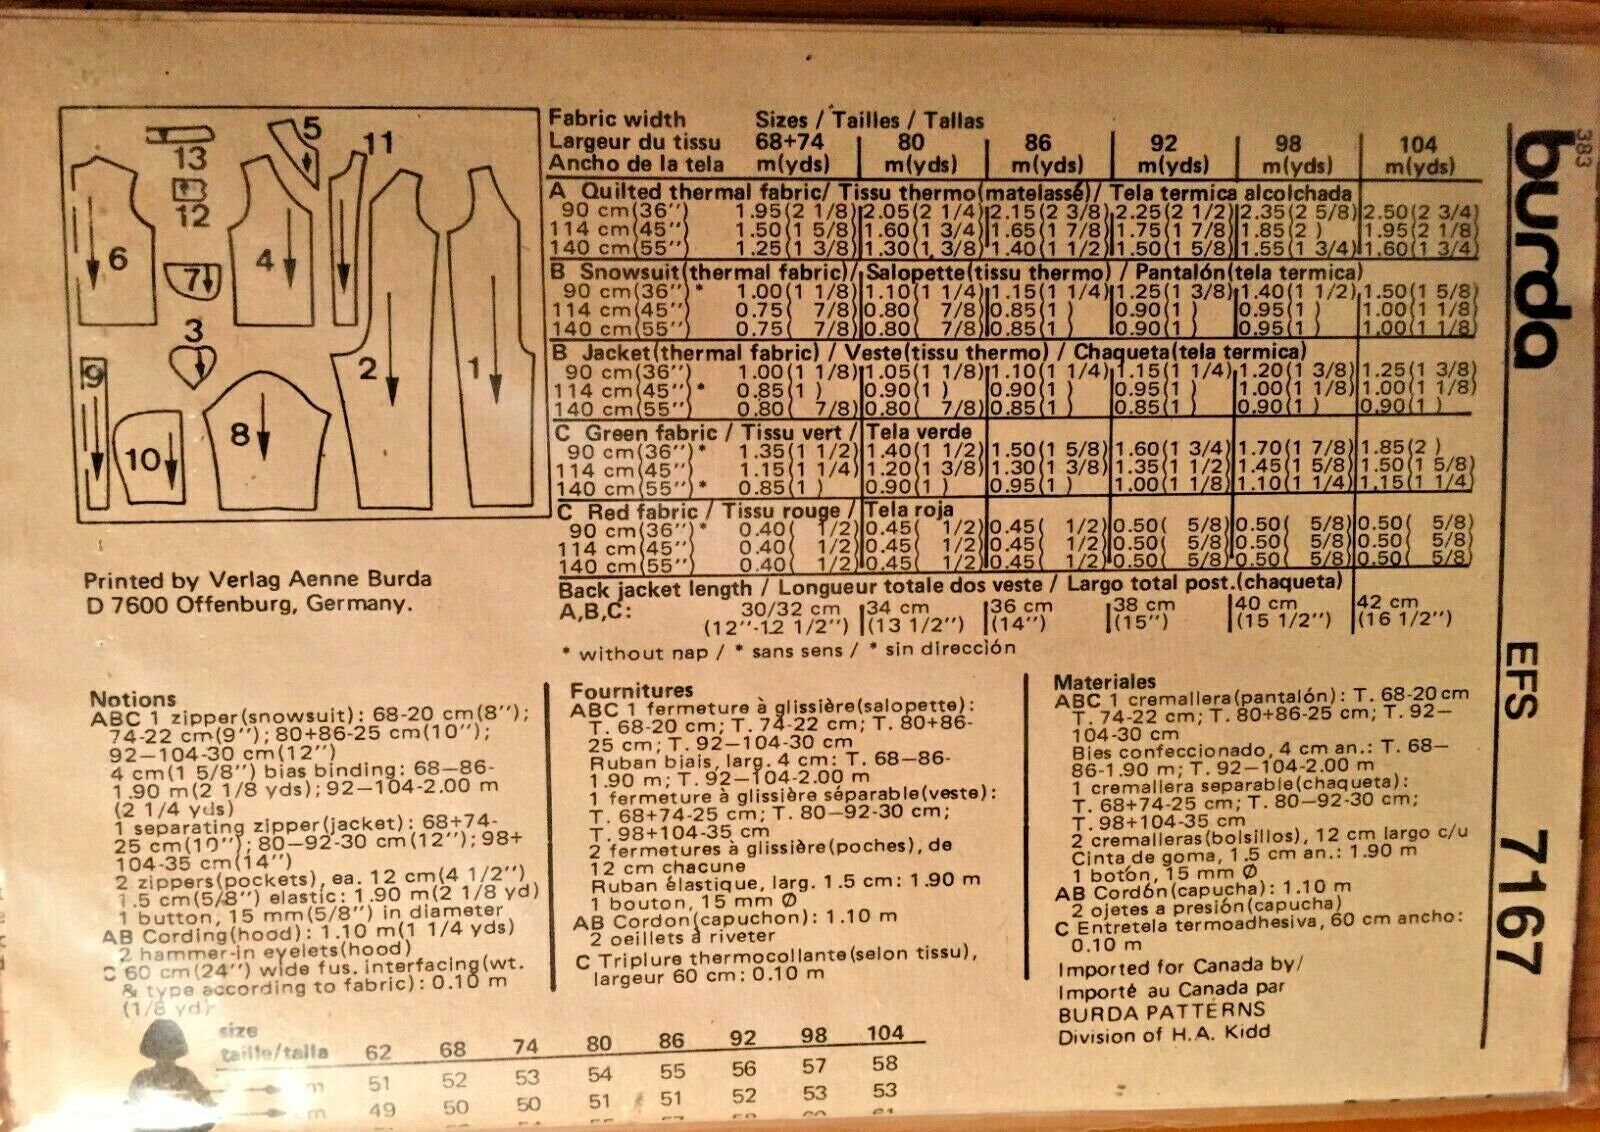 13
5
11
12
6
4
7
3
2
1
9
10
8
Fabric width Sizes / Tailles / Tallas
Largeur du tissu 68+74 80 86 92 98 104
Ancho de la tela m(yds) m(yds) m(yds) m(yds) m(yds) m(yds)
A Quilted thermal fabric/ Tissu thermo(matelassé)/ Tela termica alcolchada
90 cm(36'') 1.95(2 1/8) 2.05(2 1/4) 2.15(2 3/8) 2.25(2 1/2) 2.35(2 5/8) 2.50(2 3/4)
114 cm(45'') 1.50(1 5/8) 1.60(1 3/4) 1.65(1 7/8) 1.75(1 7/8) 1.85(2 ) 1.95(2 1/8)
140 cm(55'') 1.25(1 3/8) 1.30(1 3/8) 1.40(1 1/2) 1.50(1 5/8) 1.55(1 3/4) 1.60(1 3/4)
B Snowsuit(thermal fabric)/ Salopette(tissu thermo) / Pantalón(tela termica)
90 cm(36'')* 1.00(1 1/8) 1.10(1 1/4) 1.15(1 1/4) 1.25(1 3/8) 1.40(1 1/2) 1.50(1 5/8)
114 cm(45'') 0.75( 7/8) 0.80( 7/8) 0.85(1 ) 0.90(1 ) 0.95(1 ) 1.00(1 1/8)
140 cm(55'') 0.75( 7/8) 0.80( 7/8) 0.85(1 ) 0.90(1 ) 0.95(1 ) 1.00(1 1/8)
B Jacket(thermal fabric) / Veste(tissu thermo) / Chaqueta(tela termica)
90 cm(36'') 1.00(1 1/8) 1.05(1 1/8) 1.10(1 1/4) 1.15(1 1/4) 1.20(1 3/8) 1.25(1 3/8)
114 cm(45'')* 0.85(1 ) 0.90(1 ) 0.90(1 ) 0.95(1 ) 1.00(1 1/8) 1.00(1 1/8)
140 cm(55'') 0.80( 7/8) 0.80( 7/8) 0.85(1 ) 0.85(1 ) 0.90(1 ) 0.90(1 )
C Green fabric / Tissu vert / Tela verde
90 cm(36'')* 1.35(1 1/2) 1.40(1 1/2) 1.50(1 5/8) 1.60(1 3/4) 1.70(1 7/8) 1.85(2 )
114 cm(45'') 1.15(1 1/4) 1.20(1 3/8) 1.30(1 3/8) 1.35(1 1/2) 1.45(1 5/8) 1.50(1 5/8)
140 cm(55'')* 0.85(1 ) 0.90(1 ) 0.95(1 ) 1.00(1 1/8) 1.10(1 1/4) 1.15(1 1/4)
C Red fabric / Tissu rouge / Tela roja
90 cm(36'')* 0.40( 1/2) 0.45( 1/2) 0.45( 1/2) 0.50( 5/8) 0.50( 5/8) 0.50( 5/8)
114 cm(45'') 0.40( 1/2) 0.45( 1/2) 0.45( 1/2) 0.50( 5/8) 0.50( 5/8) 0.50( 5/8)
140 cm(55'') 0.40( 1/2) 0.45( 1/2) 0.45( 1/2) 0.50( 5/8) 0.50( 5/8) 0.50( 5/8)
Back jacket length / Longueur totale dos veste / Largo total post.(chaqueta)
A,B,C: 30/32 cm 34 cm 36 cm 38 cm 40 cm 42 cm
(12''-12 1/2'') (13 1/2'') (14'') (15'') (15 1/2'') (16 1/2'')
* without nap / * sans sens / * sin dirección
Printed by Verlag Aenne Burda
D 7600 Offenburg, Germany.
Notions
ABC 1 zipper(snowsuit): 68-20 cm(8'');
74-22 cm(9''); 80+86-25 cm(10'');
92—104-30 cm(12'')
4 cm(1 5/8'') bias binding: 68—86-
1.90 m(2 1/8 yds); 92—104-2.00 m
(2 1/4 yds)
1 separating zipper(jacket): 68+74-
25 cm(10''); 80—92-30 cm(12''); 98+
104-35 cm(14'')
2 zippers(pockets), ea. 12 cm(4 1/2'')
1.5 cm(5/8'') elastic: 1.90 m(2 1/8 yd)
1 button, 15 mm(5/8'') in diameter
AB Cording(hood): 1.10 m(1 1/4 yds)
2 hammer-in eyelets(hood)
C 60 cm(24'') wide fus. interfacing(wt.
& type according to fabric): 0.10 m
(1/8 yd)
Fournitures
ABC 1 fermeture à glissière(salopette):
T. 68-20 cm; T. 74-22 cm; T. 80+86-
25 cm; T. 92—104-30 cm
Ruban biais, larg. 4 cm: T. 68—86-
1.90 m; T. 92—104-2.00 m
1 fermeture à glissière séparable(veste):
T. 68+74-25 cm; T. 80—92-30 cm;
T. 98+104-35 cm
2 fermetures à glissière(poches), de
12 cm chacune
Ruban élastique, larg. 1.5 cm: 1.90 m
1 bouton, 15 mm Ø
AB Cordon(capuchon): 1.10 m
2 oeillets à riveter
C Triplure thermocollante(selon tissu),
largeur 60 cm: 0.10 m
Materiales
ABC 1 cremallera(pantalón): T. 68-20 cm
T. 74-22 cm; T. 80+86-25 cm; T. 92—
104-30 cm
Bies confeccionado, 4 cm an.: T. 68—
86-1.90 m; T. 92—104-2.00 m
1 cremallera separable(chaqueta):
T. 68+74-25 cm; T. 80—92-30 cm;
T. 98+104-35 cm
2 cremalleras(bolsillos), 12 cm largo c/u
Cinta de goma, 1.5 cm an.: 1.90 m
1 botón, 15 mm Ø
AB Cordón(capucha): 1.10 m
2 ojetes a presión(capucha)
C Entretela termoadhesiva, 60 cm ancho:
0.10 m
Imported for Canada by/
Importé au Canada par
BURDA PATTERNS
Division of H.A. Kidd
size
taille/talla 62 68 74 80 86 92 98 104
51 52 53 54 55 56 57 58
cm 49 50 50 51 51 52 53 53
383
burda
EFS 7167